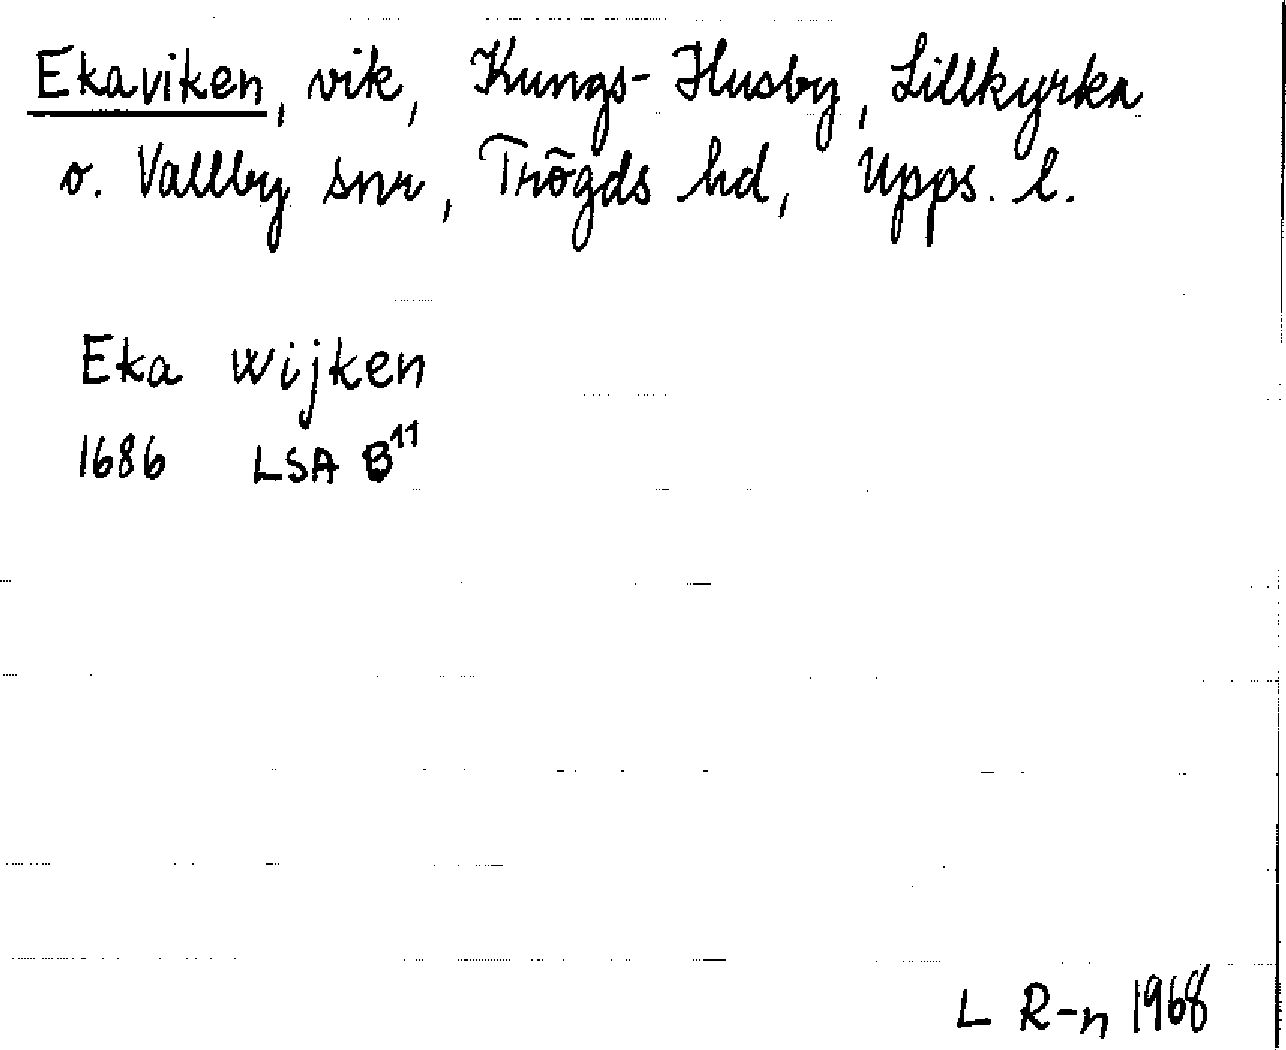 Ekaviken, vik, Kungs-Husby, Lillkyrka
o. Vallby snr, Trögds hd, Upps. l.
Eka Wijken
1686 LSA B¹¹
L R-n 1968